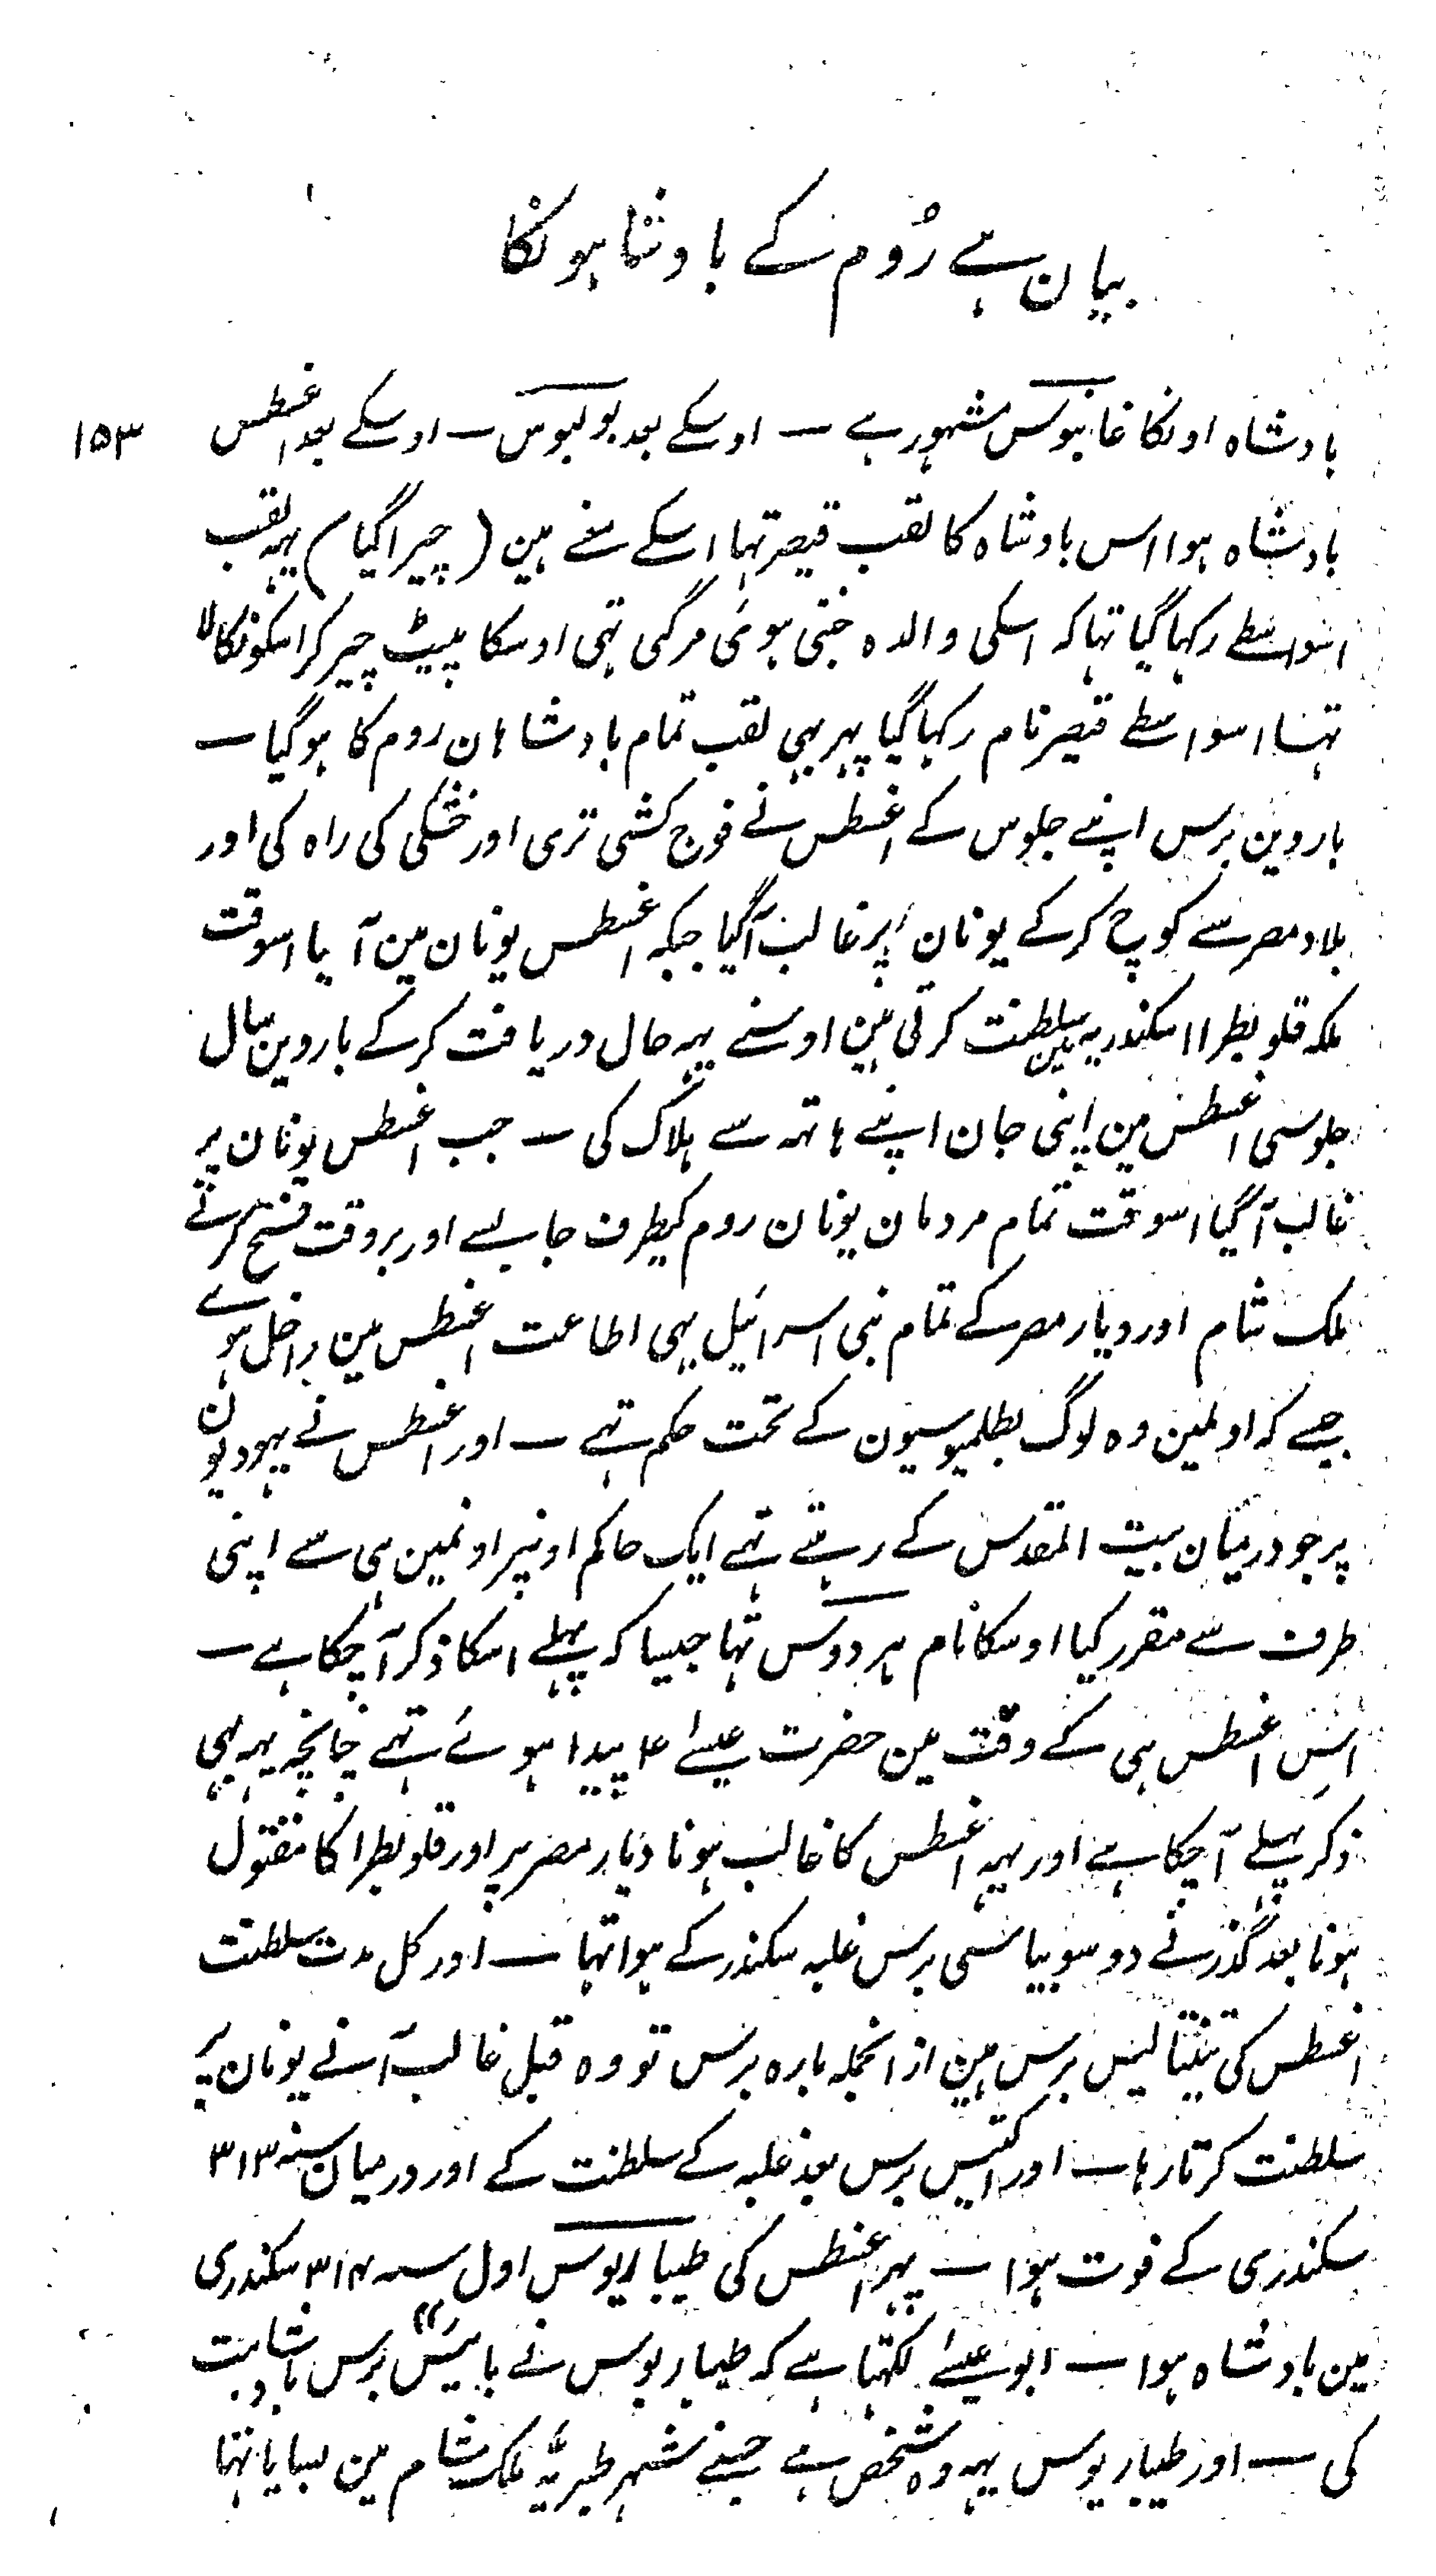 بیان ہے رُوم کے بادشاہونکا
بادشاہ اونکا غانیوس مشہور ہے — اوسکے بعد یولیوس — اوسکے بعد اغسطس
۱۵۳
بادشاہ ہوا اس بادشاہ کا لقب قیصر تہا اسکے معنے ہین (چیرا گیا) یہہ لقب
اسواسطے رکہا گیا تہا کہ اسکی والدہ جنتی ہوئی مر گئی تہی اوسکا پیٹ چیر کر اسکو نکالا
تہا اسواسطے قیصر نام رکہا گیا پہر یہی لقب تمام بادشاہان روم کا ہو گیا —
باروین برس اپنے جلوس کے اغسطس نے فوج کشی تری اور خشکی کی راہ کی اور
بلاد مصر سے کوچ کر کے یونان پر غالب آگیا جبکہ اغسطس یونان مین آیا اسوقت
ملکہ قلوبطرا اسکندریہ مین سلطنت کرتی تہین اوسنے یہہ حال دریافت کر کے باروین سال
جلوسی اغسطس مین اپنی جان اپنے ہاتہہ سے ہلاک کی — جب اغسطس یونان پر
غالب آگیا اسوقت تمام مردمان یونان روم کیطرف جا بسے اور بروقت فتح کرنے
ملک شام اور دیار مصر کے تمام بنی اسرائیل بہی اطاعت اغسطس مین داخل ہوے
جیسے کہ اولمین وہ لوگ بطلمیوسیون کے تحت حکم تہے — اور اغسطس نے یہودیون
پر جو درمیان بیت المقدس کے رہتے تہے ایک حاکم اونپر اونمین ہی سے اپنی
طرف سے مقرر کیا اوسکا نام ہردوس تہا جیسا کہ پہلے اسکا ذکر آچکا ہے —
اس اغسطس ہی کے وقت مین حضرت عیسےٰ ۴ پیدا ہوئے تہے چنانچہ یہہ بہی
ذکر پہلے آچکا ہے اور یہہ اغسطس کا غالب ہونا دیار مصر پر اور قلوبطرا کا مقتول
ہونا بعد گذرنے دو سو بیاسی برس غلبہ سکندر کے ہوا تہا — اور کل مدت سلطنت
اغسطس کی تینتالیس برس ہین ازانجملہ بارہ برس تو وہ قبل غالب آنے یونان پر
سلطنت کرتا رہا — اور اکتیس برس بعد غلبہ کے سلطنت کے اور درمیان سنہ ۳۱۳
سکندری کے فوت ہوا — پہر اغسطس کی طیباریوس اول سنہ ۳۱۴ سکندری
مین بادشاہ ہوا — ابو عیسےٰ لکہتا ہے کہ طیباریوس نے بائیس برس بادشاہت
کی — اور طیباریوس یہہ وہ شخص ہے جسنے شہر طبریہ ملک شام مین بسایا تہا